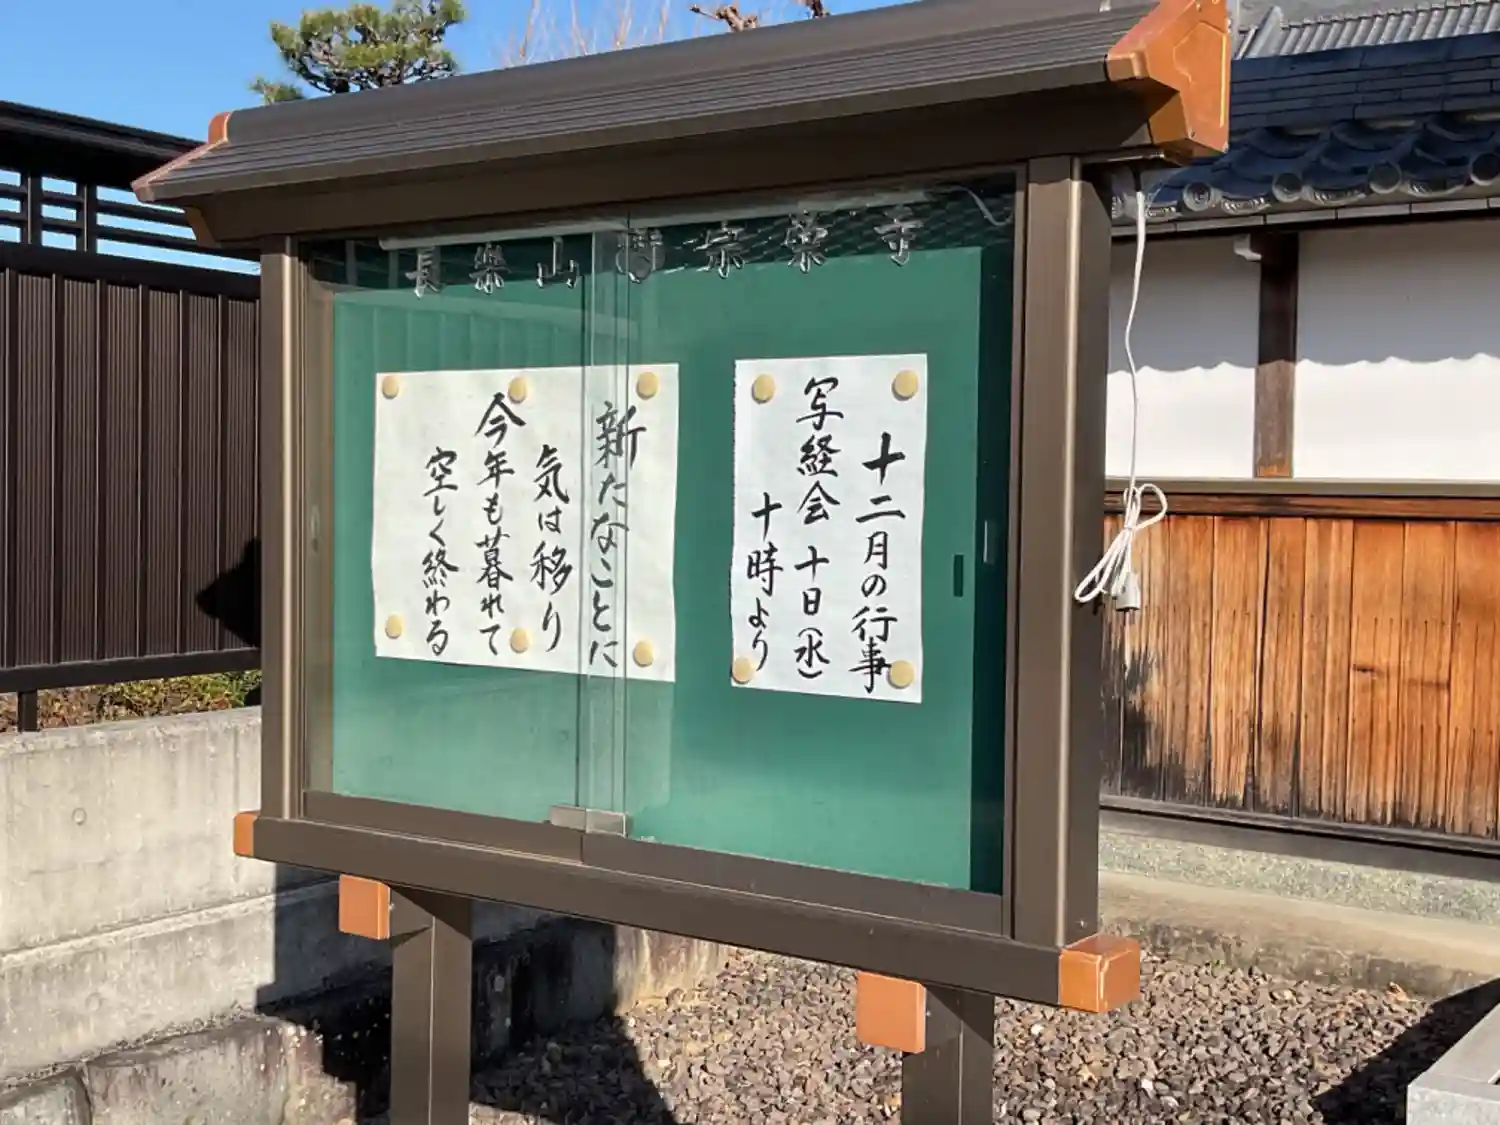 長樂山 宗榮寺
十二月の行事
写経会 十日(水)
十時より
新たなことに
気は移り
今年も暮れて
空しく終わる